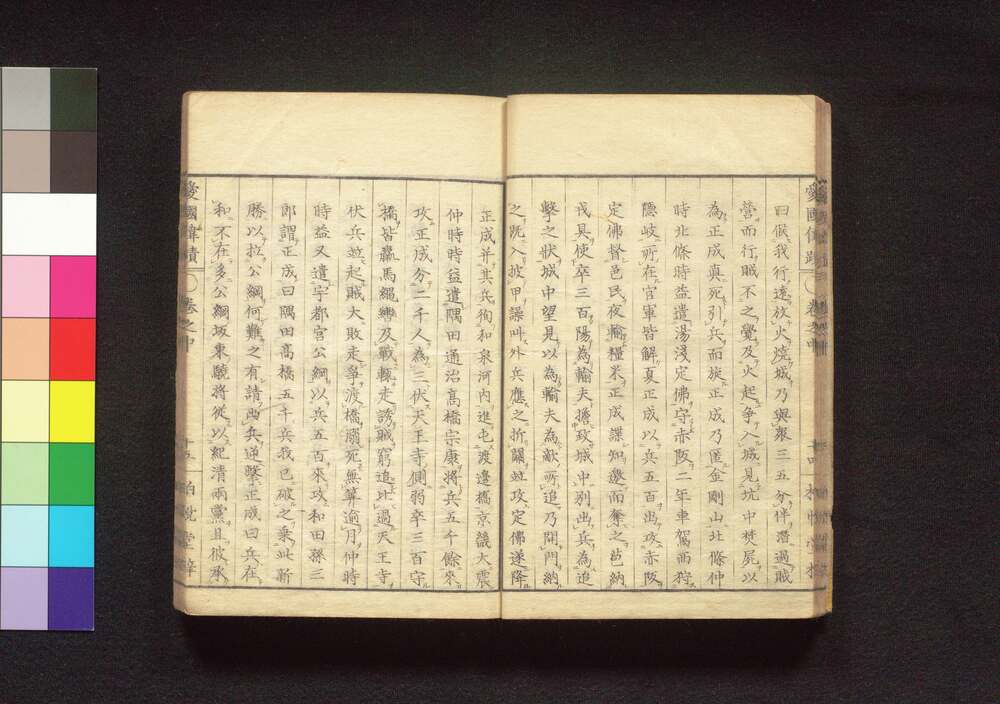 曰候我行遠放火燒城乃與眾三五分伴潛過賊
營而行賊不之覺及火起爭入城見坑中焚屍以
為正成真死引兵而旋正成乃匿金剛山北條仲
時北條時益遣湯淺定佛守赤阪二年車駕西狩
隱岐所在官軍皆解夏正成以兵五百出攻赤阪
定佛督邑民夜輸糧米正成諜知邀而奪之苞納
戎具使卒三百陽為輸夫擔致城中別出兵為追
擊之狀城中望見以為輸夫為敵所追乃開門納
之既入披甲譟叫外兵應之折關並攻定佛遂降
正成并其兵徇和泉河內進屯渡邊橋京畿大震
仲時時益遣隅田通治高橋宗康將兵五千餘來
攻正成分二千人為三伏天王寺側弱卒三百守
橋皆羸馬繩轡及戰輙走誘賊窮追比過天王寺
伏兵並起賊大敗走爭渡橋溺死無算逾月仲時
時益又遣宇都宮公綱以兵五百來攻和田孫三
郎謂正成曰隅田高橋五千兵我已破之乘此新
勝以拉公綱何難之有請出兵逆擊正成曰兵在
和不在多公綱坂東驍將從以紀清兩黨且彼承
愛國偉績
卷之中
十五
愛國偉蹟
卷之中
十四